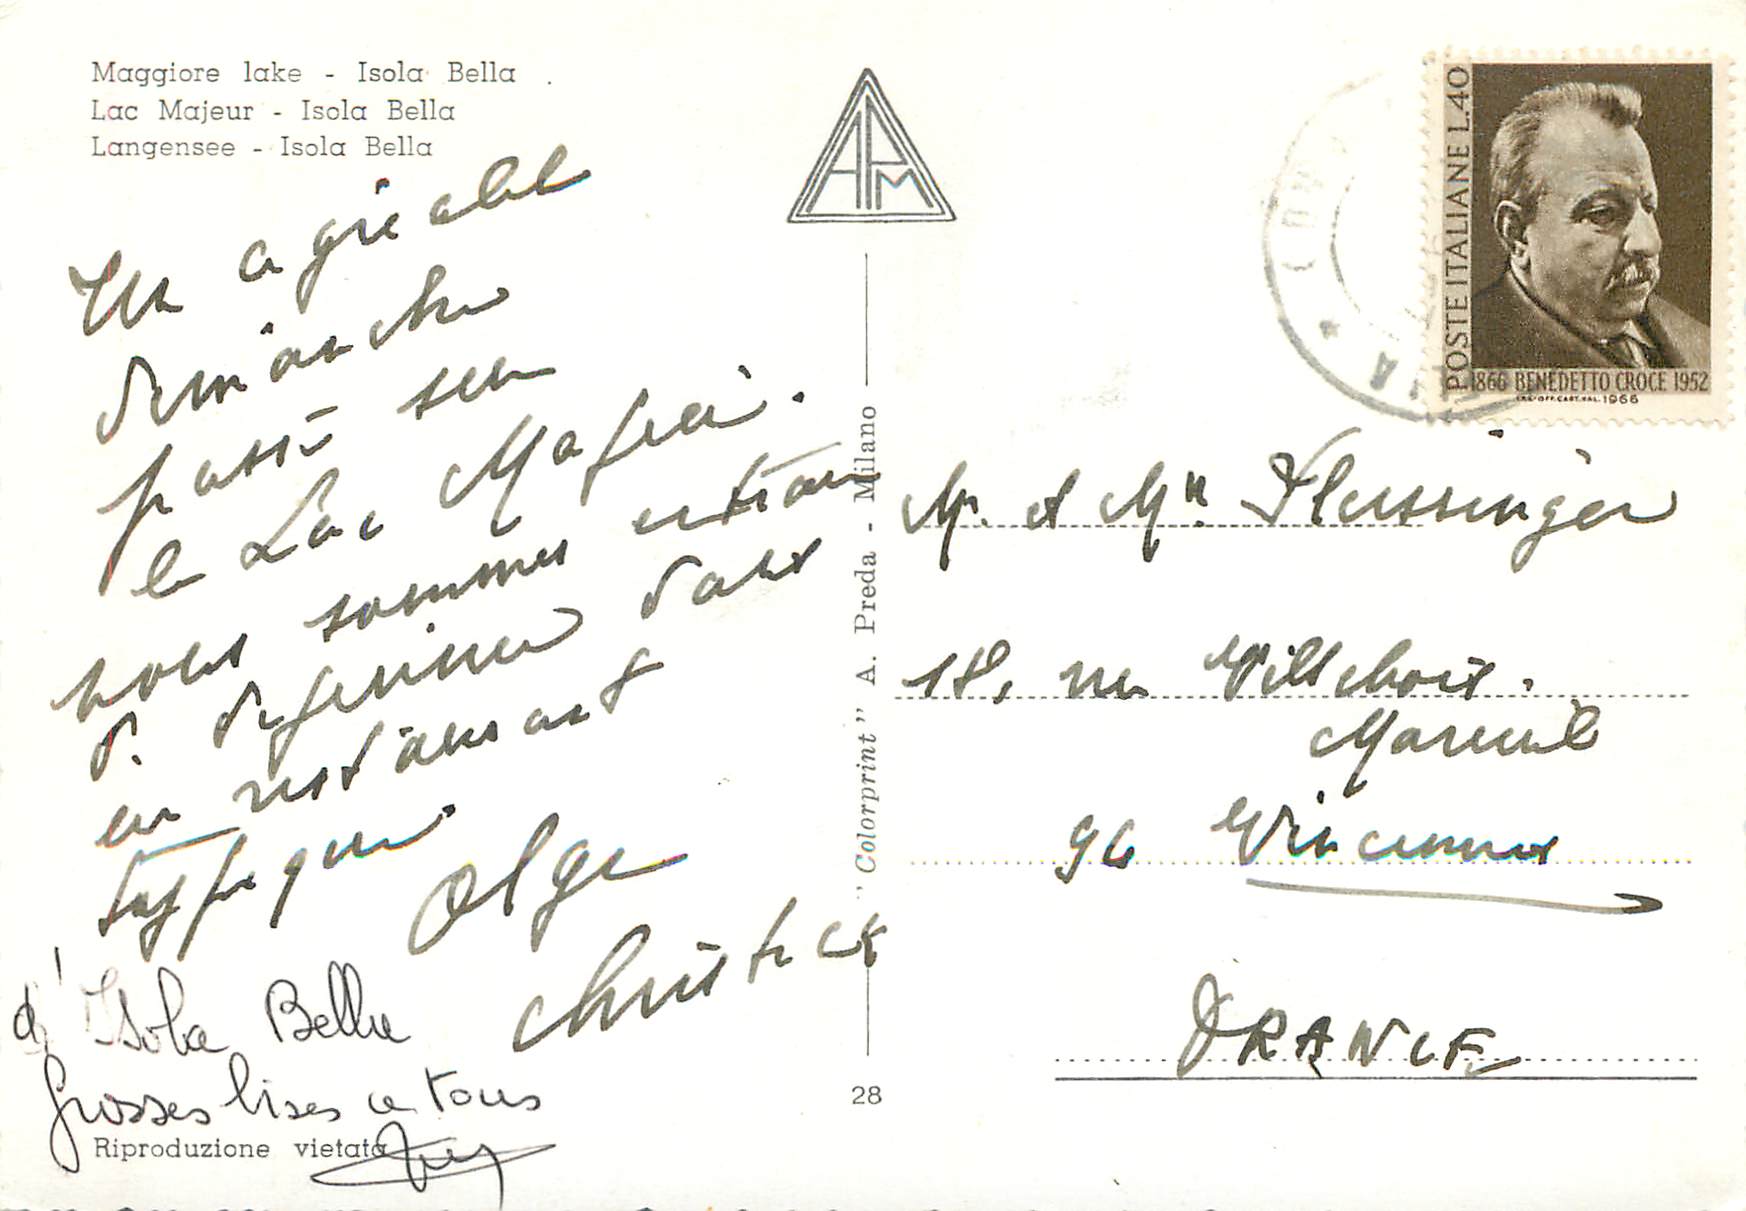 Maggiore lake - Isola Bella
Lac Majeur - Isola Bella
Langensee - Isola Bella
Un agréable
dimanche
passé sur
le Lac Majeur.
nous sommes
déjeuner dans
un restaurant
Olga
Christian
d'Isola Bella
Grosses bises a tous
Riproduzione vietata
APM
"Colorprint" A. Preda - Milano
28
POSTE ITALIANE L.40
1866 BENEDETTO CROCE 1952
1966
M. et Me Flessinger
18, rue Villebois
Mareuil
94 Vincennes
FRANCE